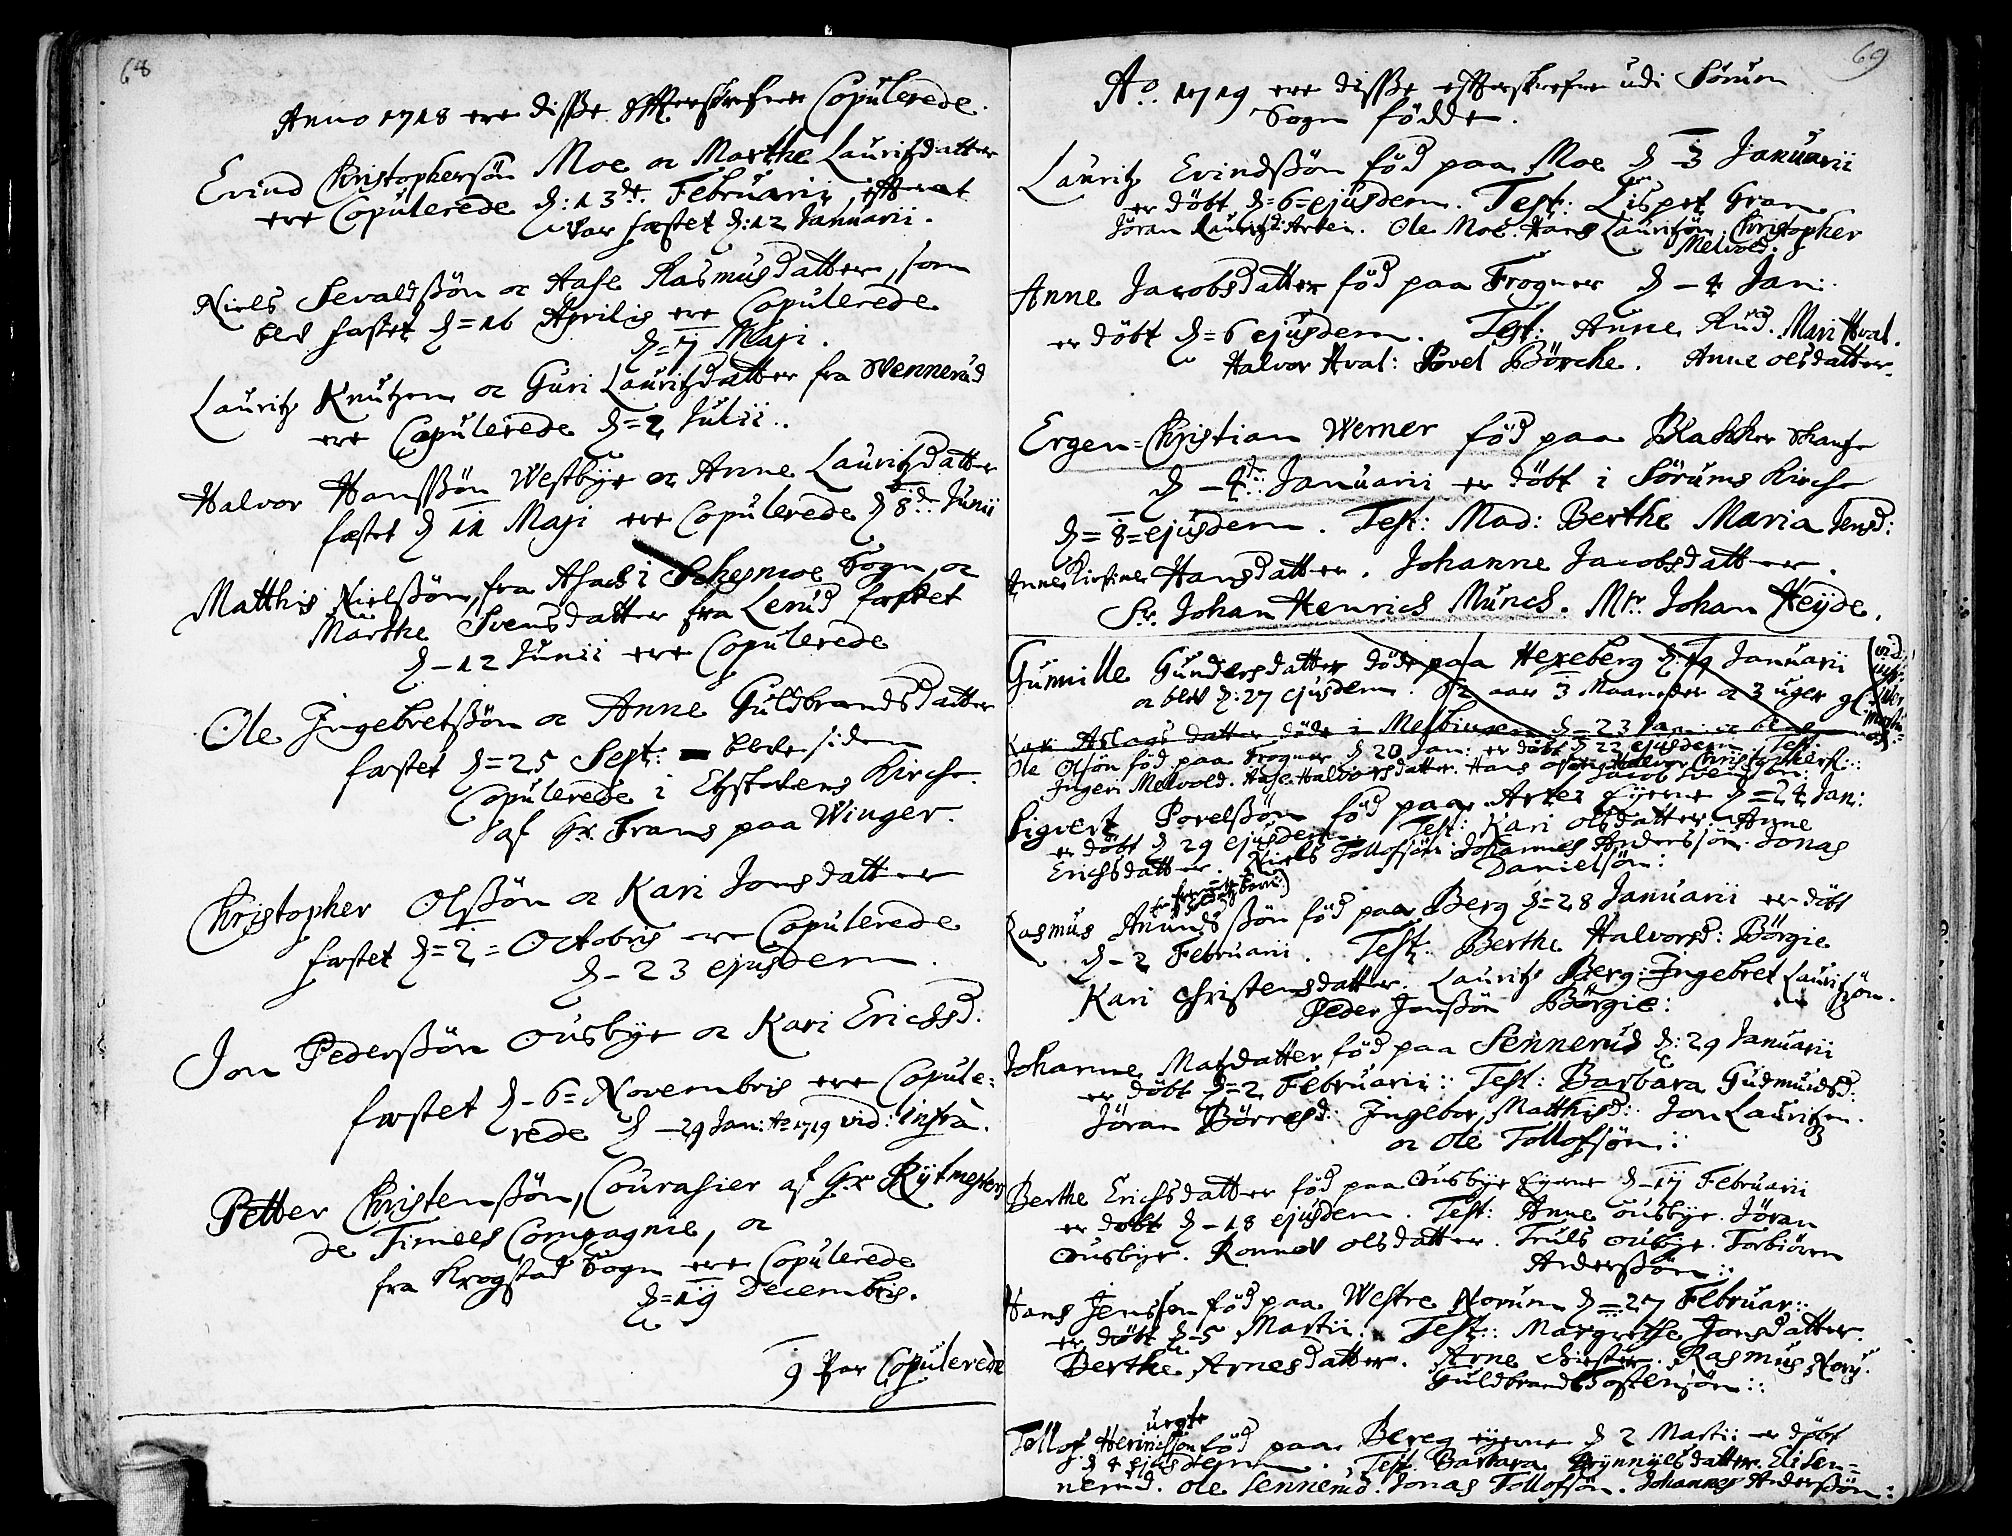 68
Anno 1718 ere disse effterskrefne Copulerede.
Evind Christophersøn Moe oc Marthe Lauritzdatter
ere Copulerede d: 13de Februarii, effter at
var fæstet d: 12 Januarii.
Niels Sevaldssøn oc Aase Rasmusdatter, som
blev fæstet d=16 Aprilis ere Copulerede
d=7 Maji.
Lauritz Knutzen oc Guri Lauritzdatter fra Wennerud
ere Copulerede d=2 Julii.
Halvor Hanssøn Westbye oc Anne Lauritzdatter
fæstet d 11 Maji ere Copulerede d 8de Junii
Matthis Nielssøn, fra Asach i Schesmoe Sogn, oc
Marthe Svensdatter fra Lerud fæstet
d-12 Junii ere Copulerede
Ole Ingebretssøn oc Anne Guldbrandsdatter
fæstet d=25 Sept: bleve siden
Copulerede i Kirche.
af Hr. Frans paa Winger.
Christopher Olssøn oc Kari Jonsdatter
fæstet d=2=Octobris ere Copulerede
d-23 ejusdem.
Jon Pederssøn Ousbye oc Kari Erichsd.
fæstet d-6=Novembris ere Copule=
rede d-29 Jan: Ao 1719 vid: infra.
Petter Christenssøn, Courasier af Hr Rytmesters
de Compagnie, oc
fra Krogstad Sogn ere Copulerede
d=19 Decembris.
9 Par Copulerede
69
Ao. 1719 ere disse effterskrefne udi Sørum
Sogn fødde.
Lauritz Evindssøn fød paa Moe d 3 Januarii
er døbt d=6=ejusdem. Test: Lispet Gran
Jøran Lauritzd: Arken. Ole Moe. Hans Lauritzøn. Christopher
Melvold.
Anne Jacobsdatter fød paa Frogner d-4 Jan:
er døbt d=6 ejusdem. Test: Anne Rud. Mari Hval.
Halvor Hval: Povel Børche. Anne olsdatter.
Ergen=Christian Werner fød paa Blakker Skanse
d-4de: Januarii er døbt i Sørums Kirche
d=8=ejusdem. Test: Mad: Berthe Maria Jensd:
Anne Kirstine Hansdatter. Johanne Jacobsdatter.
Sr. Johan Henrich Munch. Mr. Johan Heyde.
Gunnille Gundersdatter døde paa Hexeberg d: 19 Januarii
oc blev d: 27 ejusdem. 52 aar 3 Maaneder oc 3 uger
Kari Aslags datter døde i Melbingen d=23 Jan: oc
Ole Olsøn fød paa Frogner d 20 Jan: er døbt d 22 ejusdem Test:
Ingeri Melvold. Aase Halvorsdatter. Hans Halvor Christophers::
Jacob Svendsøn:
Sigvert Povelssøn fød paa Arken Eyerne d=24 Jan:
er døbt d 29 ejusdem. Test: Kari olsdatter. Anne
Erichsdatter. Niels Tollofsøn. Johannes Anderssøn. Jonas
Danielsøn:
Rasmus Anundssøn fød paa Berg d=28 Januarii er døbt
d-2 Februarii. Test: Berthe Halvorsd: Børgie
Kari Christensdatter. Lauritz Berg: Ingebret Lauritzøn.
Peder Jonssøn Børgie:
Johanne Matzdatter fød paa Sennerud d: 29 Januarii
er døbt d=2 Februarii:: Test: Barbara Gudmundsd:
Jøran Børresd: Ingebor, Matthisd: Jon Lauritzen.
oc Ole Tollofsøn::
Berthe Erichsdatter fød paa Ousbye Eyerne d-17 Februarii
er døbt d-18 ejusdem. Test: Anne Ousbye. Jøran
Ousbye. Ronnov olsdatter. Truls Oubye. Torbiørn
Anderssøn::
Hans Jenssøn fød paa Westre Norum d=27 Februar::
er døbt d-5 Martii. Test:: Margrethe Jonsdatter.
Berthe Arnesdatter. Arne. Rasmus Noru.
Guldbrand Tostensøn::
uegte
Tollof Henrichsøn fød paa Bereg eyerne d 2 Martii er døbt
d 4 ejusdem. Test Barbara Brynnyelsdatter. Eli Sen=
nerud. Ole Sennerud. Jonas Tollofsøn. Johannes Anderssøn: